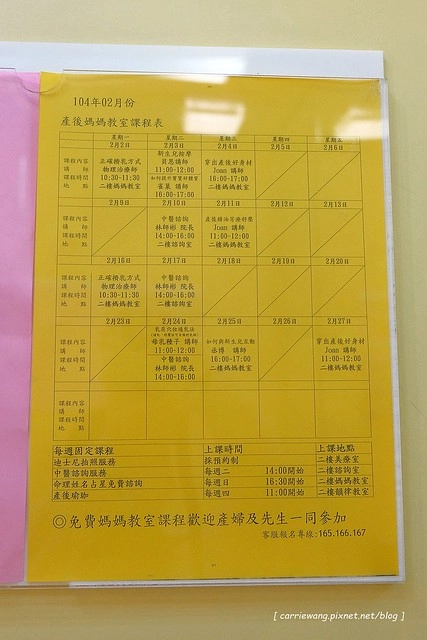 104年02月份
產後媽媽教室課程表
星期一 星期二 星期三 星期四 星期五
2月2日 2月3日 2月4日 2月5日 2月6日
課程內容 正確擠乳方式 新生兒按摩 穿出產後好身材
講 師 物理治療師 貝恩講師 Joan 講師
課程時間 10:30-11:30 11:00-12:00 16:00-17:00
地 點 二樓媽媽教室 二樓媽媽教室
講師
16:00-17:00
2月9日 2月10日 2月11日 2月12日 2月13日
課程內容 中醫諮詢
講 師 林師彬 院長 Joan 講師
課程時間 14:00-16:00 11:00-12:00
地 點 二樓諮詢室 二樓媽媽教室
2月16日 2月17日 2月18日 2月19日 2月20日
課程內容 正確擠乳方式 中醫諮詢
講 師 物理治療師 林師彬 院長
課程時間 10:30-11:30 14:00-16:00
地 點 二樓媽媽教室 二樓諮詢室
2月23日 2月24日 2月25日 2月26日 2月27日
課程內容 母乳種子 講師 如何與新生兒互動 穿出產後好身材
講 師 11:00-12:00 講師 Joan 講師
課程時間 中醫諮詢 16:00-17:00 11:00-12:00
地 點 林師彬 院長 二樓媽媽教室 二樓媽媽教室
14:00-16:00
課程內容
講 師
課程時間
地 點
每週固定課程 上課時間 上課地點
迪士尼拍照服務 採預約制 二樓美療室
中醫諮詢服務 每週二 14:00開始 二樓諮詢室
命理姓名占星免費諮詢 每週日 16:30開始 二樓媽媽教室
產後瑜珈 每週四 11:00開始 二樓韻律教室
◎免費媽媽教室課程歡迎產婦及先生一同參加
客服報名專線:165.166.167
[ carriewang.pixnet.net/blog ]